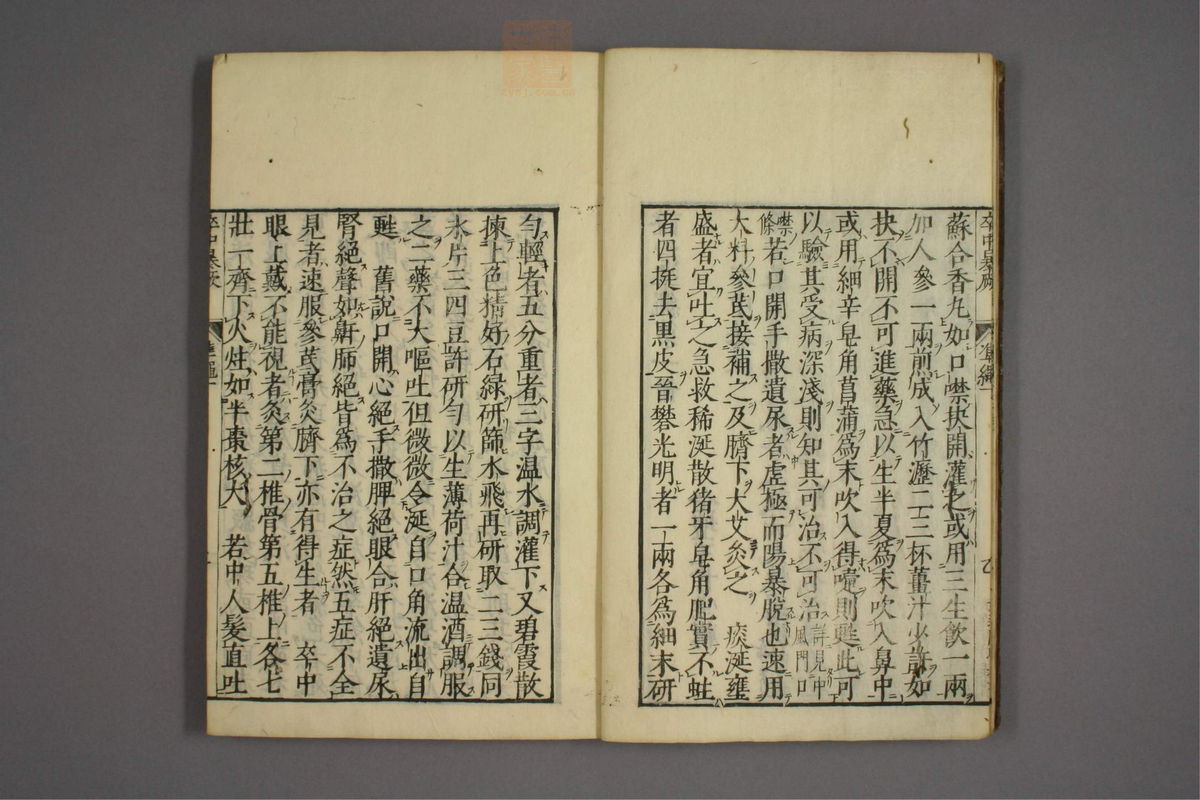 蘇合香丸如口噤抉開灌之或用三生飲一兩
加人參一兩煎成入竹瀝二三杯薑汁少許如
抉不開不可進藥急以生半夏為末吹入鼻中
或用細辛皂角菖蒲為末吹入得嚏則甦此可
以驗其受病深淺則知其可治不可治詳見中風門口
噤條若口開手撒遺尿者虛極而陽暴脫也速用
大料參芪接補之及臍下大艾灸之　痰涎壅
盛者宜吐之急救稀涎散猪牙皂角肥實不蛀
者四挺去黑皮晉礬光明者一兩各為細末研
勻輕者五分重者三字温水調灌下又碧霞散
揀上色精好石緑研篩水飛再研取二三錢同
氷片三四豆許研勻以生薄荷汁合温酒調服
之二藥不大嘔吐但微微令涎自口角流出自
甦　舊說口開心絕手撒脾絕眼合肝絕遺尿
腎絕聲如鼾肺絕皆為不治之症然五症不全
見者速服參芪膏灸臍下亦有得生者　卒中
眼上戴不能視者灸第二椎骨第五椎上各七
壯一齊下火炷如半棗核大　若中人髮直吐
卒中暴厥
準繩一